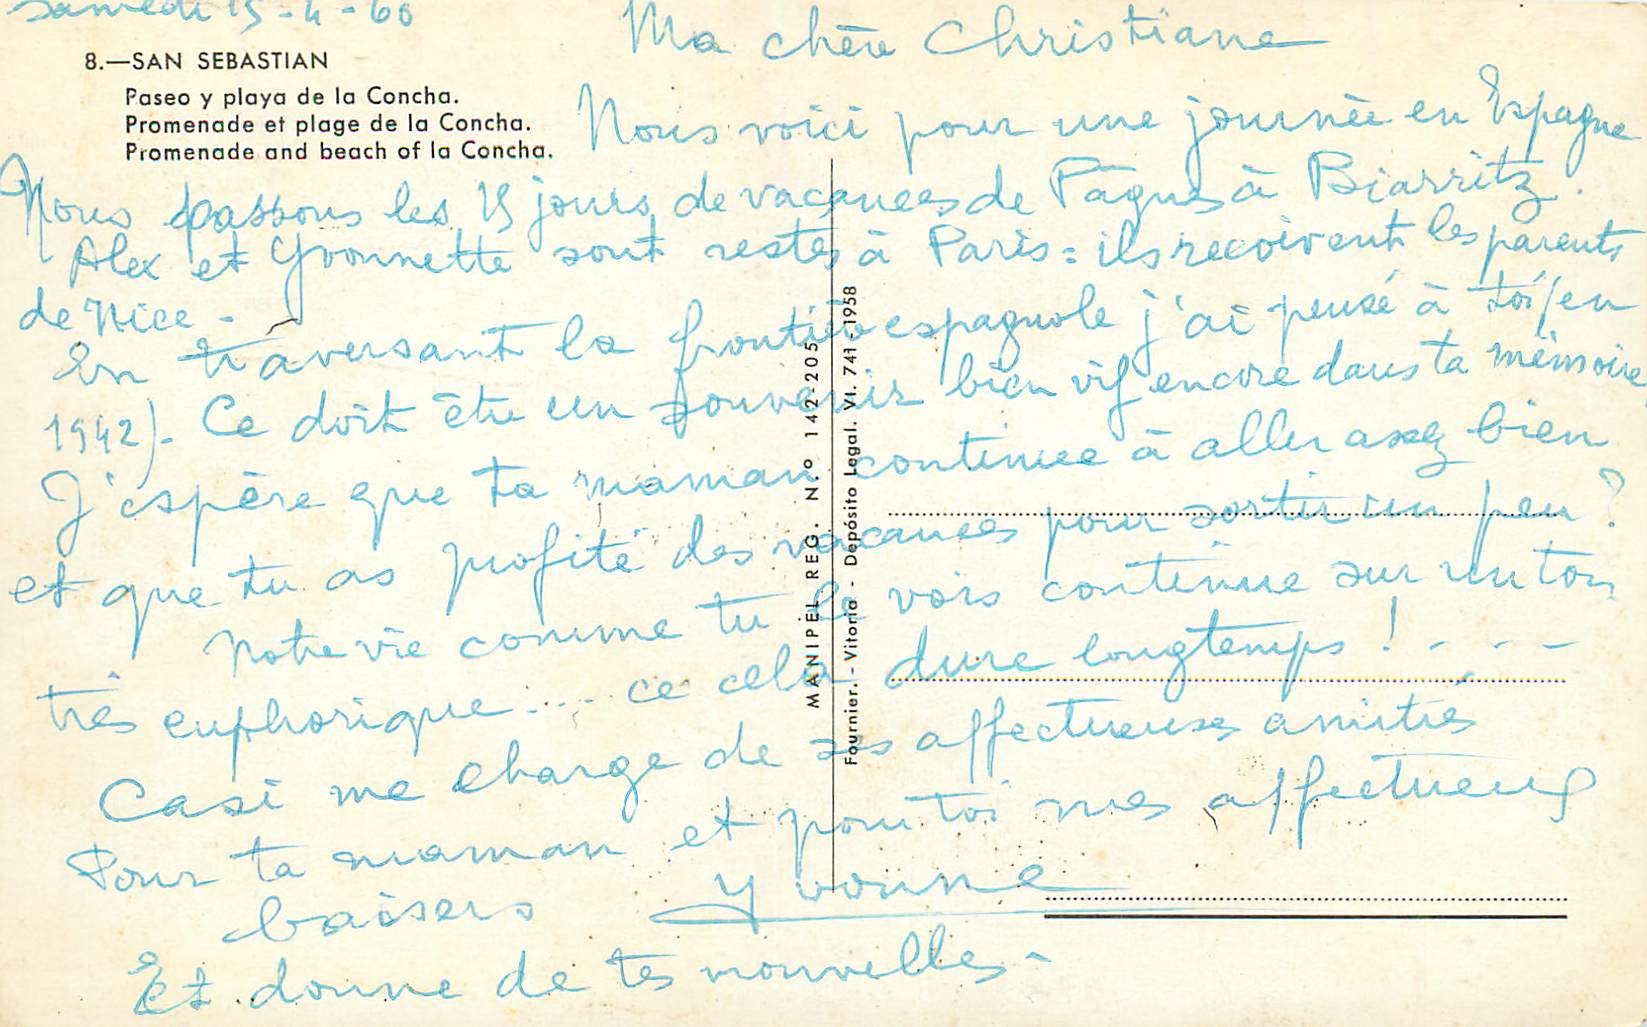 Samedi 15-4-60
8.—SAN SEBASTIAN
Paseo y playa de la Concha.
Promenade et plage de la Concha.
Promenade and beach of la Concha.
Ma chère Christiane
Nous voici pour une journée en Espagne
Nous passons les 15 jours de vacances de Pâques à Biarritz.
Alex et Yvonnette sont restés à Paris : ils reçoivent les parents
de Nice -
En traversant la frontière espagnole j'ai pensé à toi (en
1942). Ce doit être un souvenir bien vif encore dans ta mémoire
J'espère que ta maman continue à aller assez bien
et que tu as profité des vacances pour sortir un peu ?
Notre vie comme tu le vois continue sur un ton
très euphorique.... ce cela dure longtemps ! - - -
Casi me charge de ses affectueuses amitiés
Pour ta maman et pour toi mes affectueux
baisers Yvonne
Et donne de tes nouvelles -
MANIPEL REG. N.º 142-205
Fournier. - Vitoria - Depósito Legal. VI. 741 - 1958